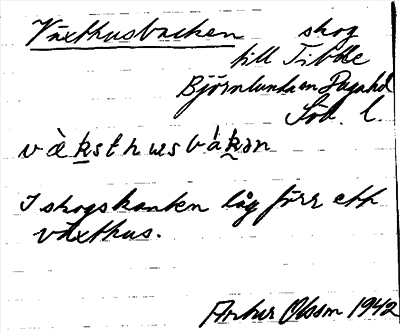 Växthusbacken skog
till Tibble
Björnlunda sn Daga hd
Söd. l.
vàksthusbákən
I skogskanten låg förr ett
växthus.
Arthur Olsson 1942